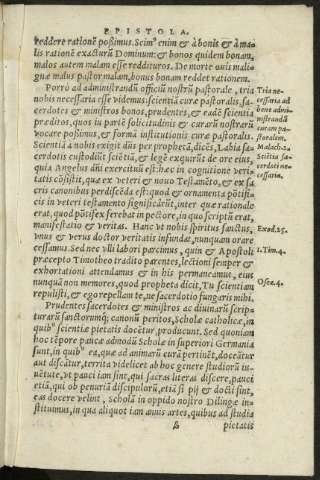 EPISTOLA.
reddere rationẽ poßimus. Scimꝰ enim & à bonis & à ma-
lis rationẽ exacturũ Dominum: & bonos quidem bonam,
malos autem malam esse reddituros. De morte ouis mali-
gnæ malus pastor malam, bonus bonam reddet rationem.
Porrò ad administrandũ officiũ nostrũ pastorale, tria
nobis necessaria esse videmus: scientiã curæ pastoralis, sa-
cerdotes & ministros bonos, prudentes, & eadẽ scientia
præditos, quos in partẽ solicitudinis & curarũ nostrarũ
vocare poßimus, & formã institutionis curæ pastoralis.
Scientiã à nobis exigit diis per prophetã, dicẽs, Labia sa-
cerdotis custodiũt sciẽtiã, & legẽ exquirũt de ore eius,
quia Angelus dñi exercituũ est: hæc in cognitione veri-
tatis cõsistit, quæ ex veteri & nouo Testamẽto, & ex sa
cris canonibus perdiscẽda est: quod & ornamenta põtifi-
cis in veteri testamento significãrũt, inter quæ rationale
erat, quod põtifex ferebat in pectore, in quo scriptũ erat,
manifestatio & veritas. Hanc vt nobis spiritus sanctus,
vnus & verus doctor veritatis infundat, nunquam orare
cessamus. Sed nec vlli labori parcimus, quin & Apostoli
præcepto Timotheo tradito parentes, lectioni semper &
exhortationi attendamus & in his permaneamus, eius
nunquã non memores, quod propheta dicit, Tu scientiam
repulisti, & ego repellam te, ne sacerdotio fungaris mihi.
Prudentes sacerdotes & ministros ac diuinarũ scrip-
turarũ sanctorumq; canonũ peritos, Scholæ catholicæ, in
quibꝰ scientiæ pietatis docẽtur, producunt. Sed quoniam
hoc tẽpore paucæ admodũ Scholæ in superiori Germania
sunt, in quibꝰ ea, quæ ad animarũ curã pertinẽt, doceãtur
aut discãtur, territa videlicet ab hoc genere studiorũ iu-
uẽtute, vt pauci iam sint, qui sacras literas discere, pauci
etiã, qui ob penuriã discipulorũ, etiã si pij & docti sint,
eas docere velint, Scholã in oppido nostro Dilingæ in-
stituimus, in qua aliquot iam annis artes, quibus ad studia
& pietatis
Tria ne-
cessaria ad
bene admi-
nistrandũ
curam pa-
storalem.
Malach. 2
Sciẽtia sa-
cerdoti ne-
cessaria.
Exod. 25.
1. Tim. 4.
Osee. 4.